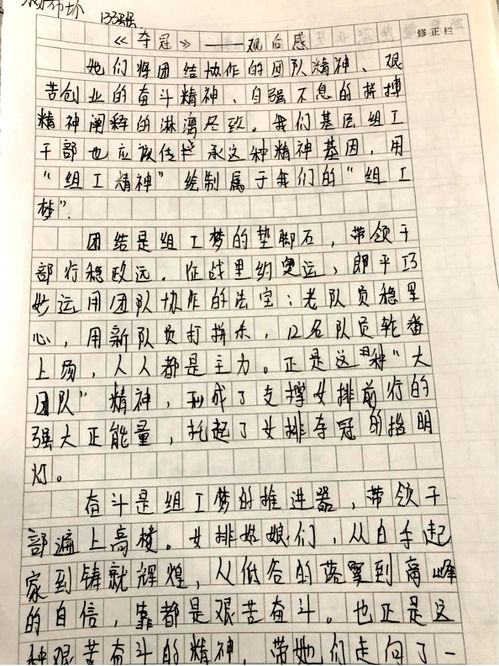 《夺冠》——观后感
修正栏
她们将团结协作的团队精神、艰
苦创业的奋斗精神、自强不息的拼搏
精神阐释的淋漓尽致。我们基层组工
干部也应该传承这种精神基因,用
“组工精神”绘制属于我们的“组工
梦”.
团结是组工梦的垫脚石,带领干
部行稳致远。征战里约奥运,郎平巧
妙运用团队协作的法宝:老队员稳军
心,用新队员打拼杀,12名队员轮番
上场,人人都是主力。正是这种“大
团队”精神,形成了支撑女排前行的
强大正能量,托起了女排夺冠的指明
灯。
奋斗是组工梦的推进器,带领干
部遍上高楼。女排姑娘们,从白手起
家到铸就辉煌,从低谷的落寞到高峰
的自信,靠都是艰苦奋斗。也正是这
种艰苦奋斗的精神,带她们走向了一